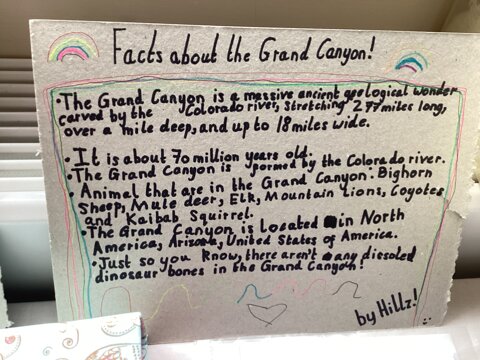 Facts about the Grand Canyon!
• The Grand Canyon is a massive ancient geological wonder
carved by the Colorado river, stretching 277 miles long,
over a mile deep, and up to 18 miles wide.
• It is about 70 million years old.
• The Grand Canyon is formed by the Colorado river.
Animal that are in the Grand Canyon: Bighorn
Sheep, Mule deer, Elk, Mountain Lions, Coyotes
and Kaibab Squirrel.
• The Grand Canyon is located in North
America, Arizona, United States of America.
• Just so you know, there aren't any dissoled
dinosaur bones in the Grand Canyon!
by Hillz!